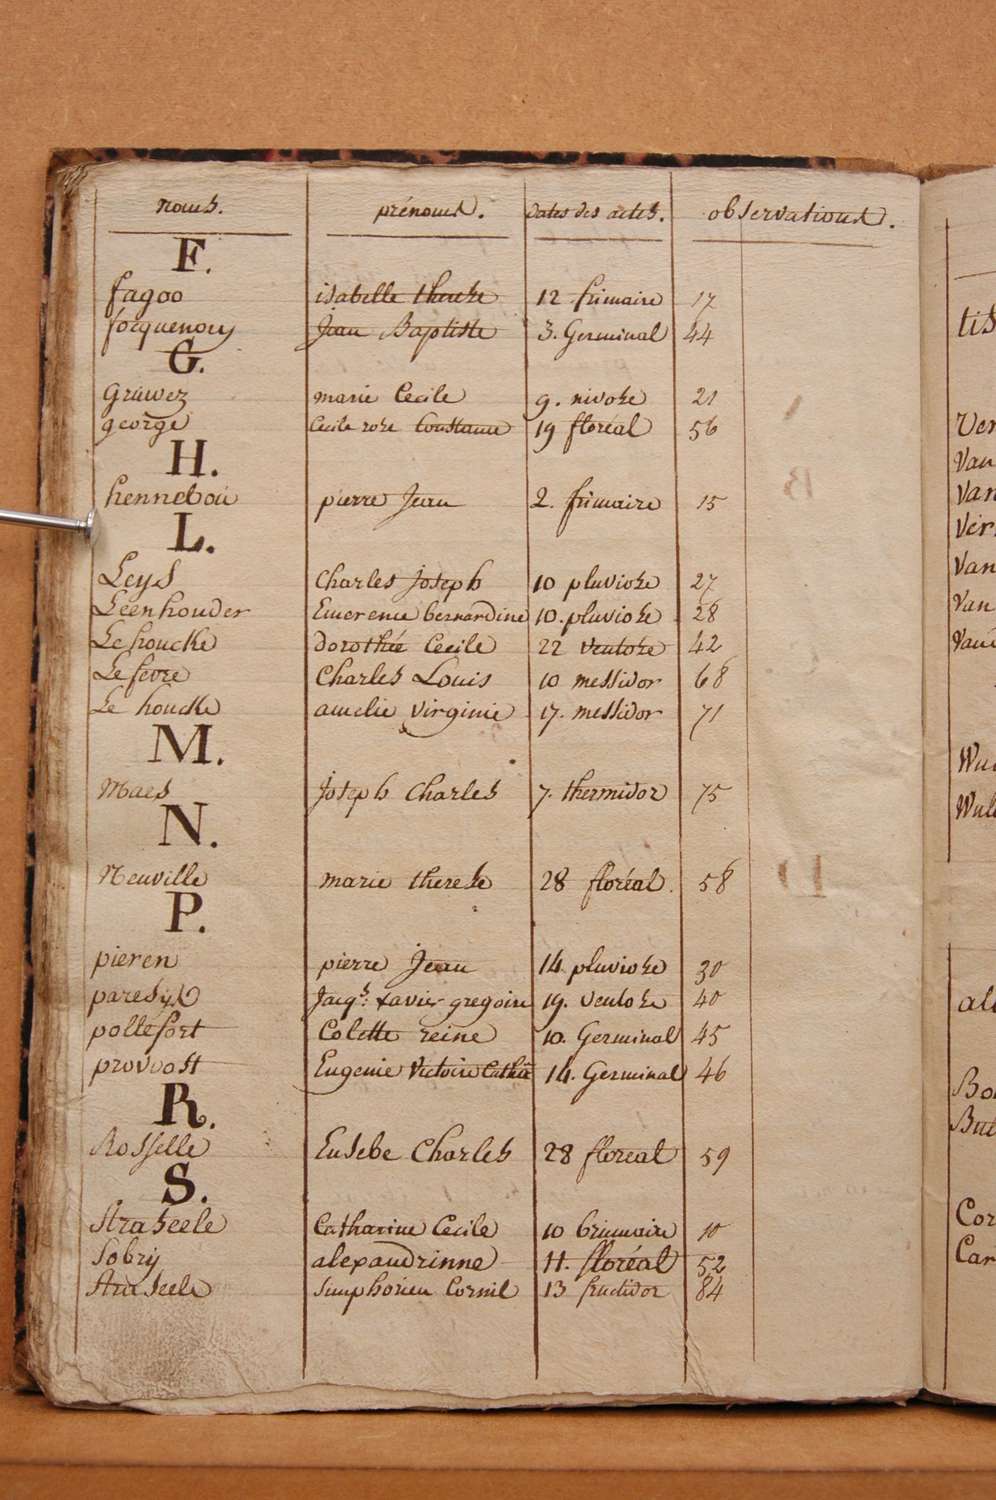 noms. prénoms. dates des actes. observations.
F.
fagoo isabelle therese 12 frimaire 17
focquenoey Jean Baptiste 3. Germinal 44
G.
Gruwez marie Cecile 9. nivose 21
george Cecile rose Constance 19 floréal 56
H.
hennebou pierre Jean 2. frimaire 15
L.
Leys Charles Joseph 10 pluviose 27
Leenhouder Emerence bernardine 10. pluviose 28
Lehoucke dorothée Cecile 22 ventose 42
Lefevre Charles Louis 10 messidor 68
Le houcke amelie virginie 17. messidor 71
M.
Maes Joseph Charles 7. thermidor 75
N.
Neuville marie therese 28 floréal. 58
P.
pieren pierre Jean 14 pluviose 30
paresys Jacqs. xavier gregoire 19. ventose 40
pottefort Colette reine 10. Germinal 45
provoost Eugenie Victoire Cathne 14. Germinal 46
R.
Rosselle Eusebe Charles 28 floreal 59
S.
Straseele Catharine Cecile 10 brumaire 10
Sobry alexandrinne 11. floréal 52
Straseele Simphorien Cornil 13 fructidor 84
tis
Ver
Van
Van
Ver
Van
Van
Van
Wu
Wul
al
Bo
Bu
Cor
Car